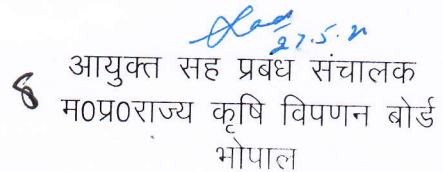 27.5.21
8 आयुक्त सह प्रबंध संचालक
म0प्र0राज्य कृषि विपणन बोर्ड
भोपाल